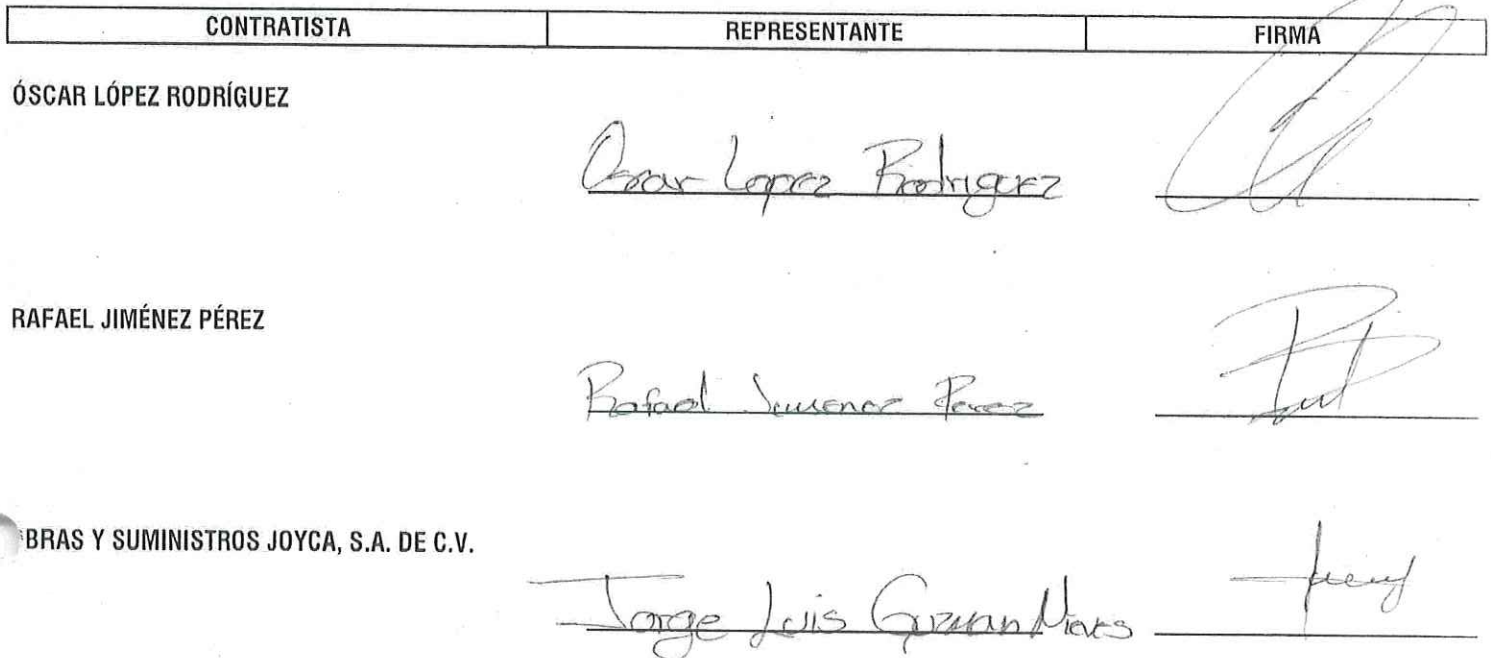 CONTRATISTA REPRESENTANTE FIRMA
ÓSCAR LÓPEZ RODRÍGUEZ
Oscar Lopez Rodriguez
RAFAEL JIMÉNEZ PÉREZ
Rafael Jimenez Perez
BRAS Y SUMINISTROS JOYCA, S.A. DE C.V.
Jorge Luis Guzman Nieves